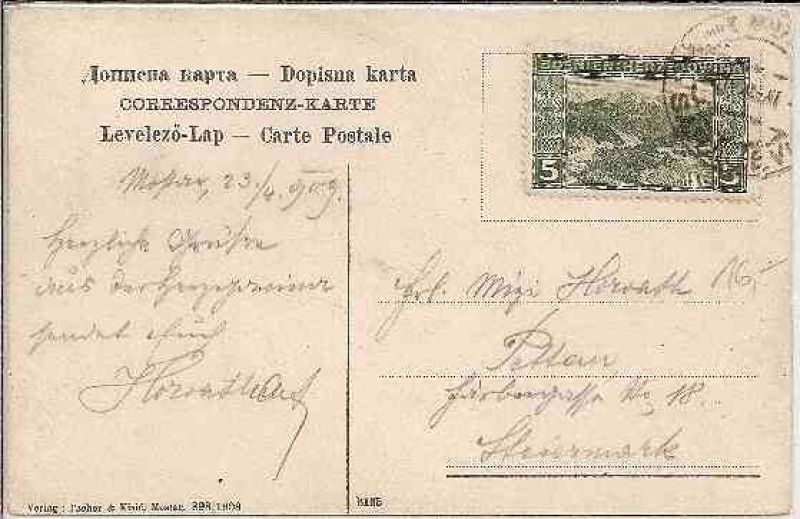 Дописна карта — Dopisna karta
CORRESPONDENZ-KARTE
Levelező-Lap — Carte Postale
BOSNIEN-HERZEGOWINA
5 5
Mostar, 23/4 909.
Herzliche Grüße
aus der Herzegowina
sendet Euch
Horvath
Frl. Mizi Horvath 16,-
Pettau
Färbergasse No 18.
Steiermark
Verlag: Pacher & Kisić, Mostar. 898/1908